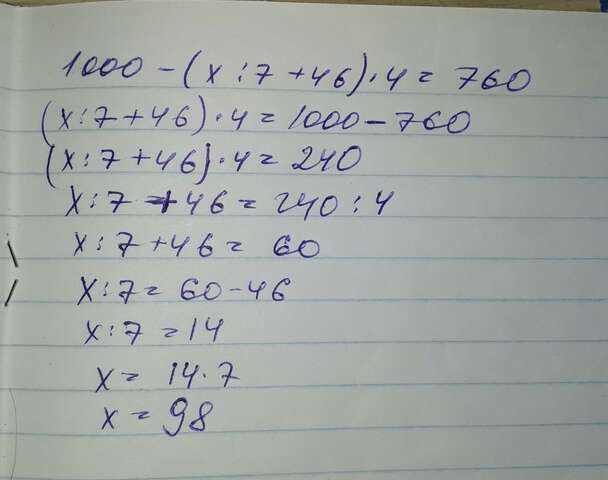 1000 - (x : 7 + 46) · 4 = 760
(x : 7 + 46) · 4 = 1000 - 760
(x : 7 + 46) · 4 = 240
x : 7 + 46 = 240 : 4
x : 7 + 46 = 60
x : 7 = 60 - 46
x : 7 = 14
x = 14 · 7
x = 98